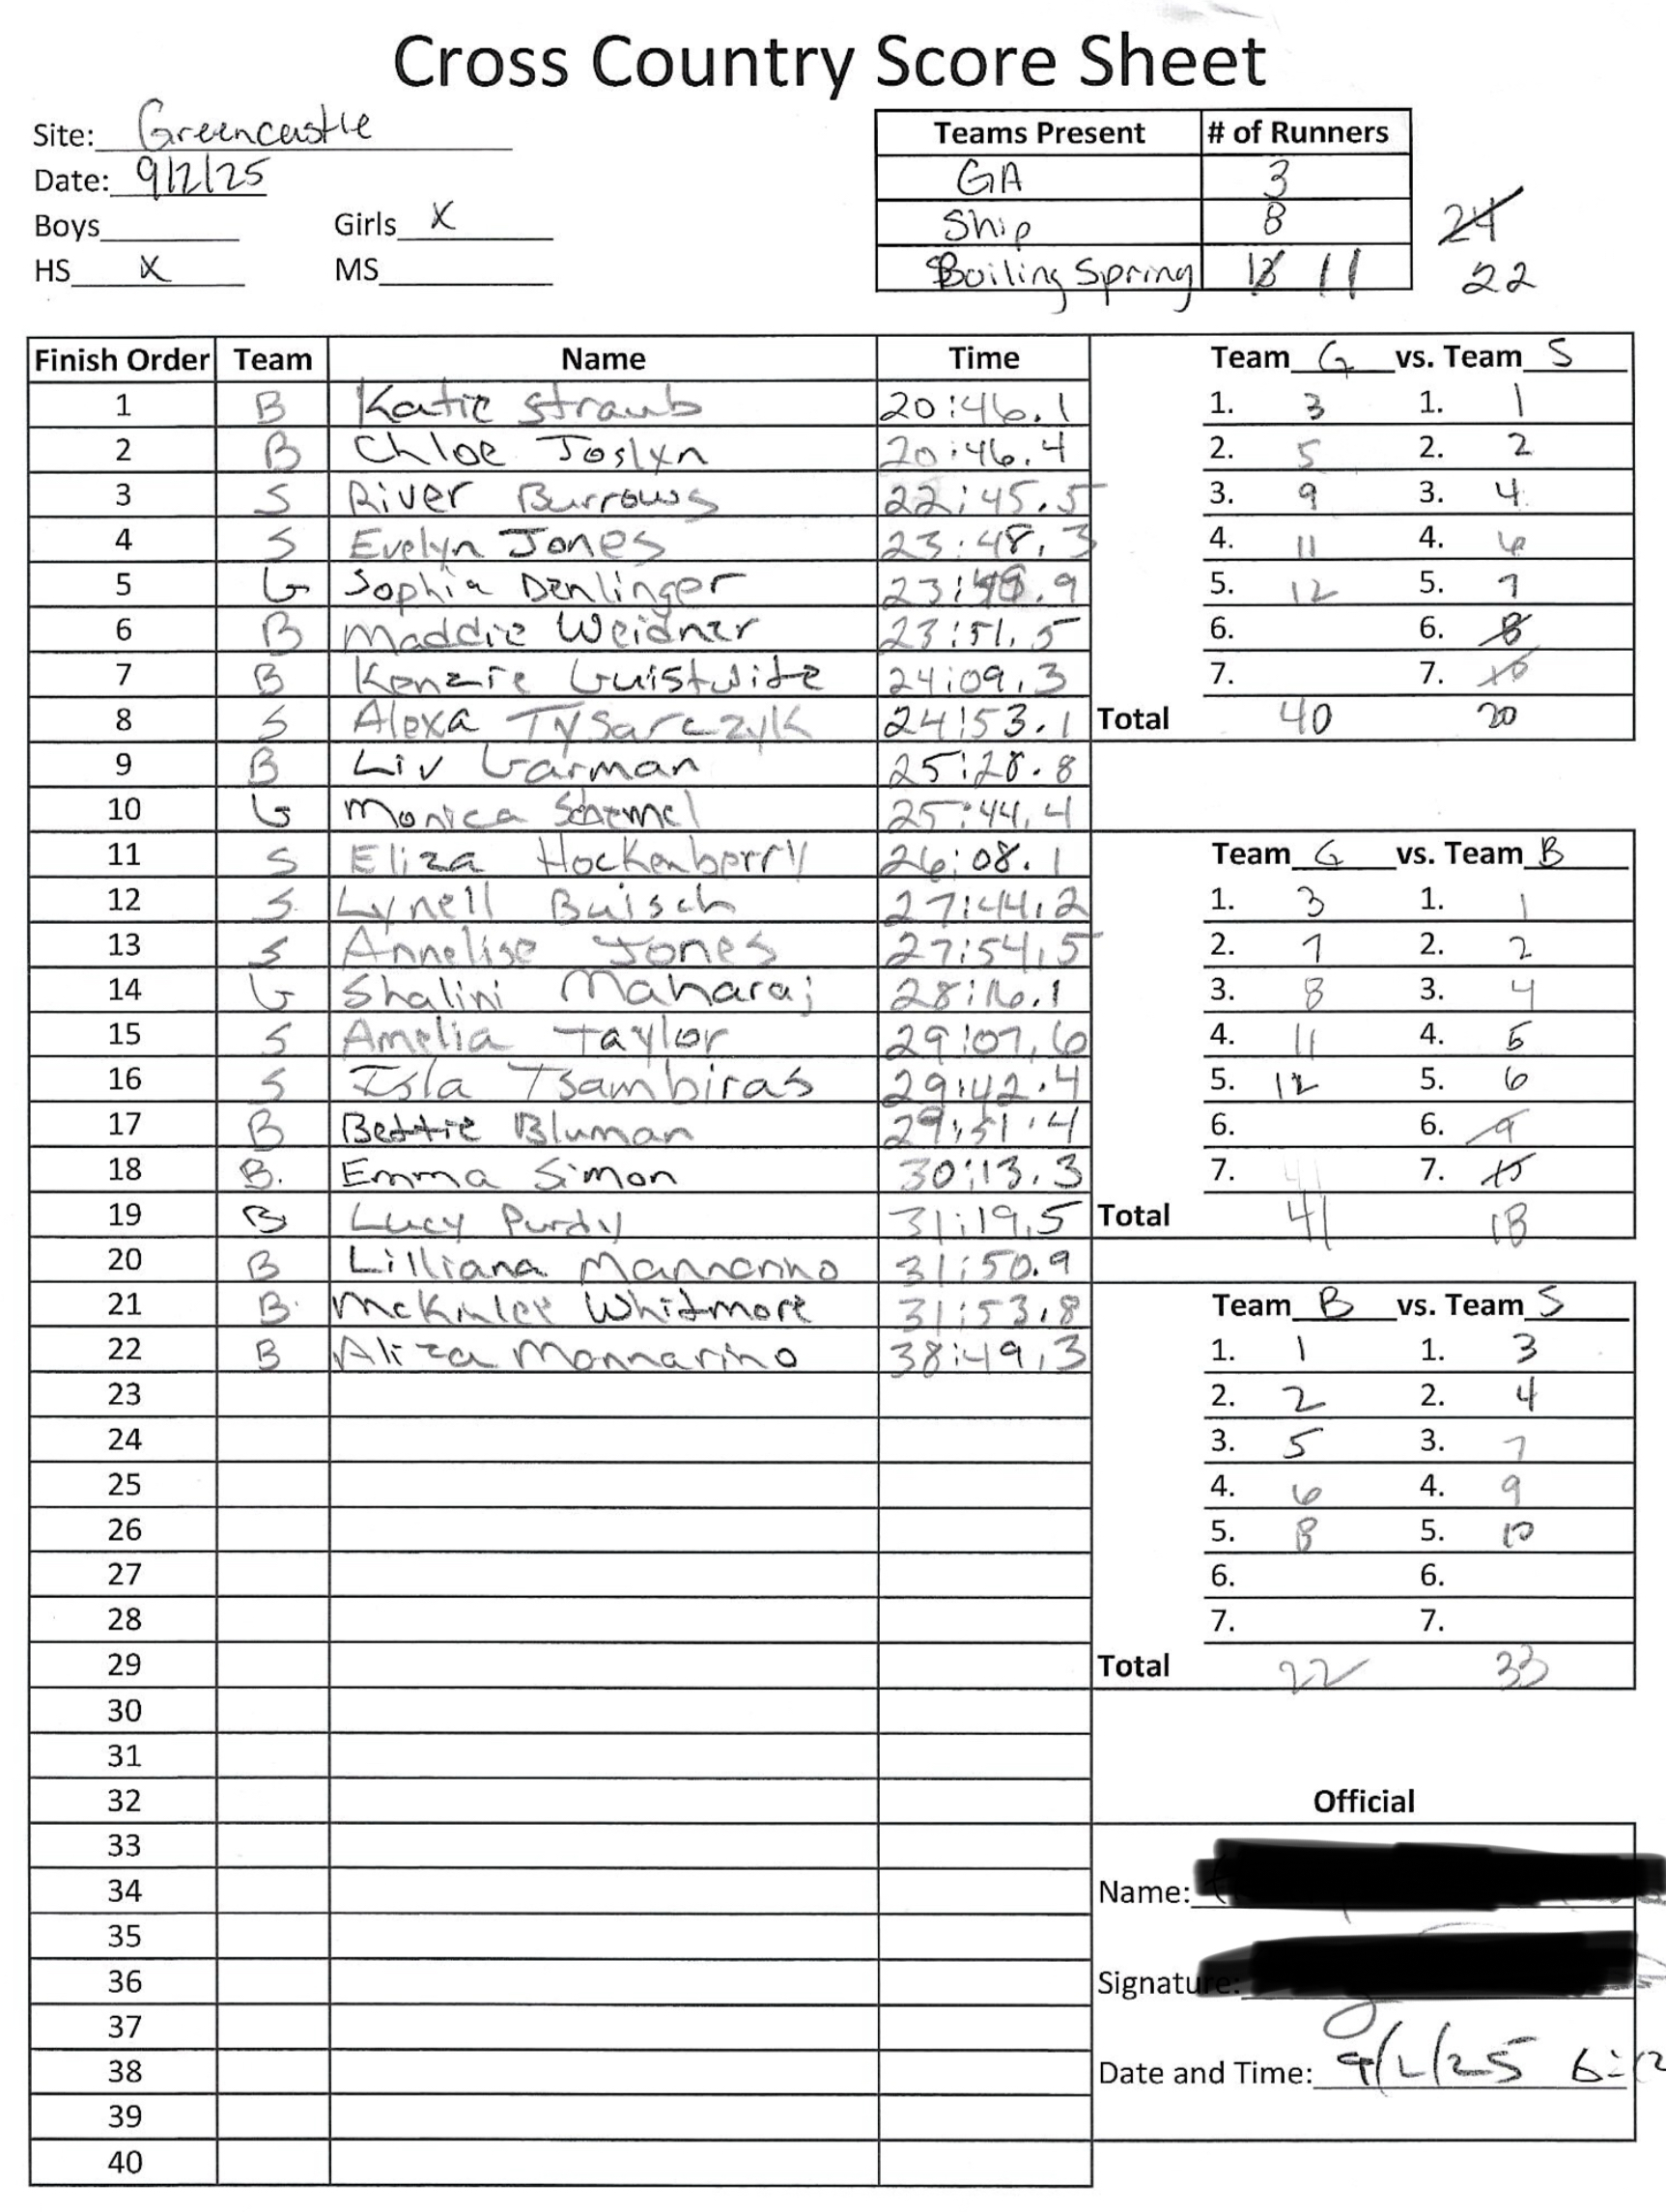 Cross Country Score Sheet
Site: Greencastle
Date: 9/2/25
Boys Girls X
HS X MS
Teams Present # of Runners
GA 3
Ship 8
Boiling Spring 11
24
22
Finish Order Team Name Time
1 B Katie Straub 20:46.1
2 B Chloe Joslyn 20:46.4
3 S River Burrows 22:45.5
4 S Evelyn Jones 23:48.3
5 G Sophia Denlinger 23:49.9
6 B Maddie Weidner 23:51.5
7 B Kenzie Guistwite 24:09.3
8 S Alexa Tysarczyk 24:53.1
9 B Liv Garman 25:28.8
10 G Monica 25:44.4
11 S Eliza Hockenberry 26:08.1
12 S Lynell Buisch 27:44.2
13 S Annelise Jones 27:54.5
14 G Shalini Maharaj 28:16.1
15 S Amelia Taylor 29:07.6
16 S Isla Tsambiras 29:42.4
17 B Bettie Bluman 29:51.4
18 B. Emma Simon 30:13.3
19 B Lucy Purdy 31:19.5
20 B Lilliana Mannarino 31:50.9
21 B McKinlee Whitmore 31:53.8
22 B Aliza Mannarino 38:49.3
23
24
25
26
27
28
29
30
31
32
33
34
35
36
37
38
39
40
Team G vs. Team S
1. 3 1. 1
2. 5 2. 2
3. 9 3. 4
4. 11 4. 6
5. 12 5. 7
6. 6. 8
7. 7. 10
Total 40 20
Team G vs. Team B
1. 3 1. 1
2. 7 2. 2
3. 8 3. 4
4. 11 4. 5
5. 12 5. 6
6. 6. 9
7. 41 7. 10
Total 41 18
Team B vs. Team S
1. 1 1. 3
2. 2 2. 4
3. 5 3. 7
4. 6 4. 9
5. 8 5. 10
6. 6.
7. 7.
Total 22 33
Official
Name:
Signature:
Date and Time: 9/2/25